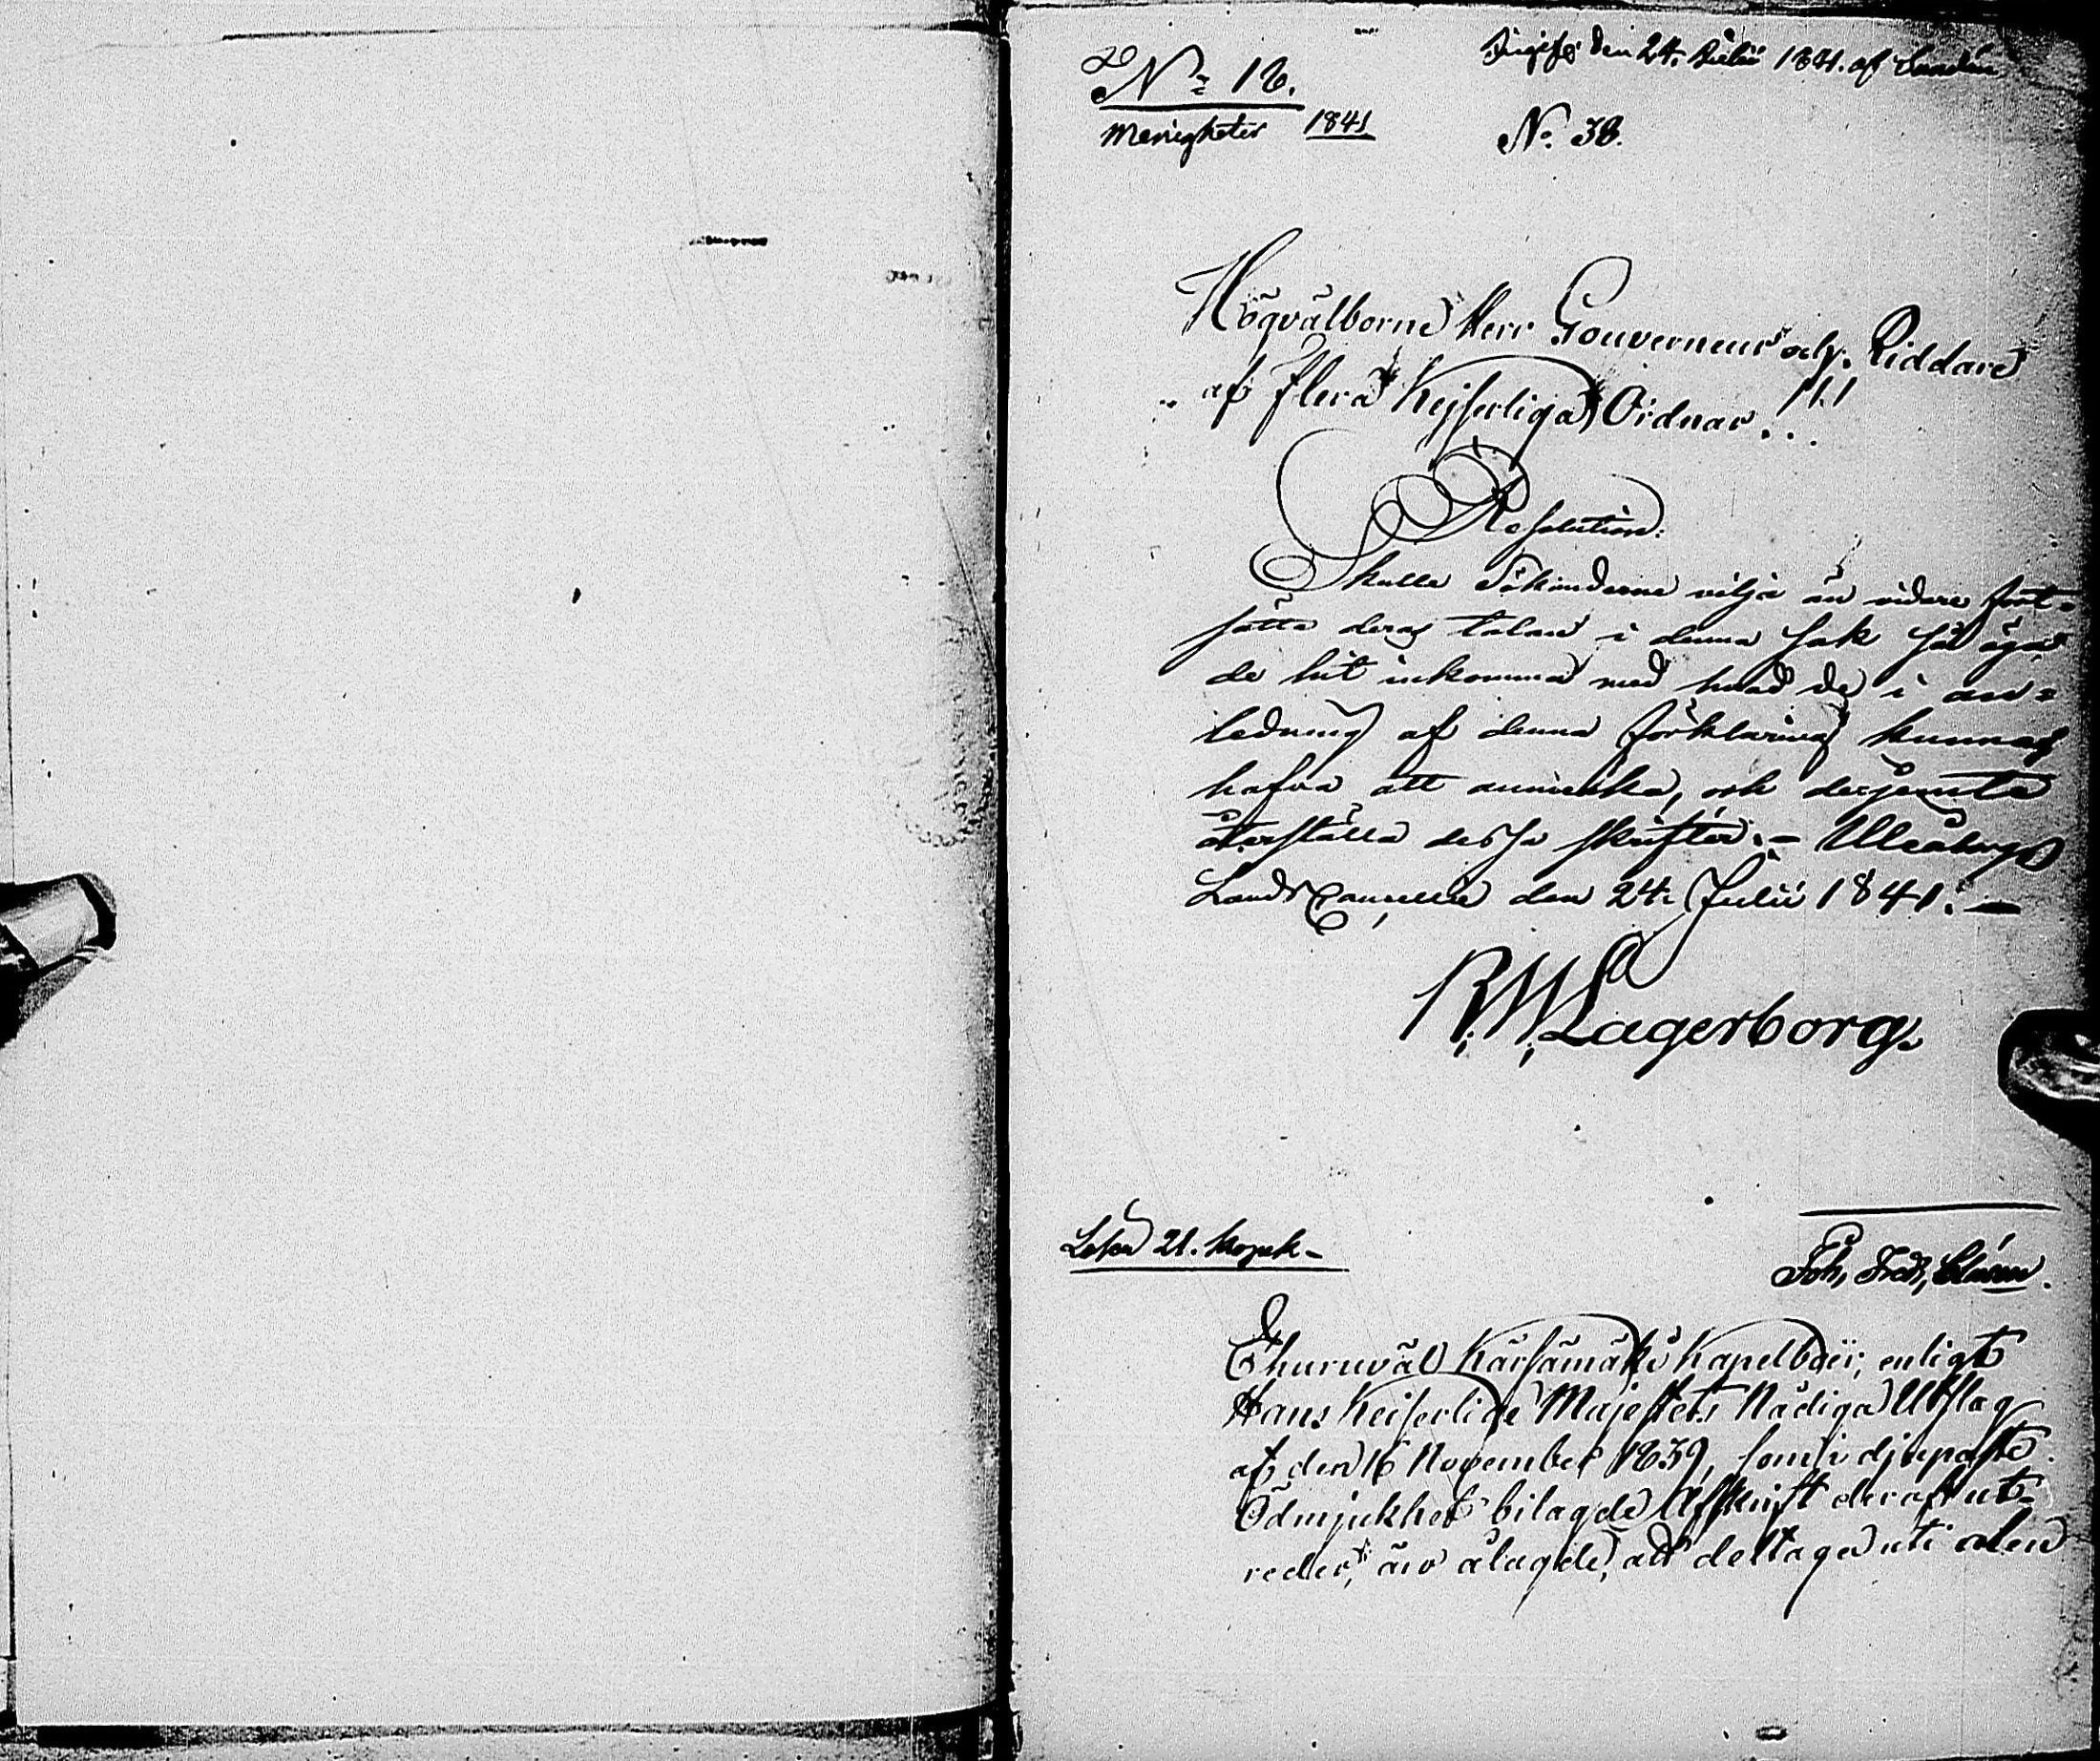 Ingif. den 24. Julii 1841. af Sundin
No 12.
Menigheter 1841
No. 38.
Högvälborne Herr Gouverneur och Riddare
af flera Kejserliga Ordnar!!!
Resolution.
Skulle Sökanderne vilja än vidare fort-
sätta deras talan i denna sak så äga
de hit inkomma med hvad de i an-
ledning af denna förklaring kunna
hafva att anmärka, och derjemte
återställa dessa skrifter. – Uleåborgs
Lands Cancellie den 24. Julii 1841. –
R. W. Lagerborg.
Lösen 21. Kopek –
Joh, Fredr,
Ehuruväl Kärsämäki Kapellboer, enligt
Hans Keiserlige Majestets Nådiga Utslag
af den 16 November 1839, som i djupaste
Ödmjukhet bilagde Afskrift deraf ut-
reder, äro ålagde, att deltaga uti den